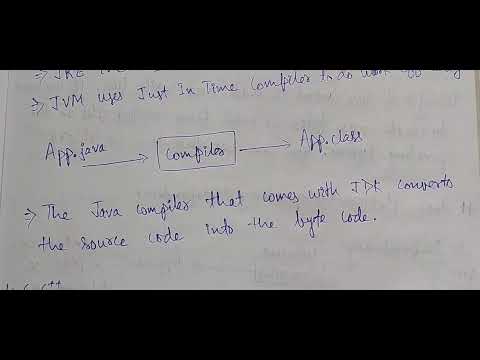 ⇒ JRE
⇒ JVM uses Just In Time Compiler to do
App.java → Compiler → App.class
⇒ The Java compiler that comes with JDK converts
the source code into the byte code.
C++